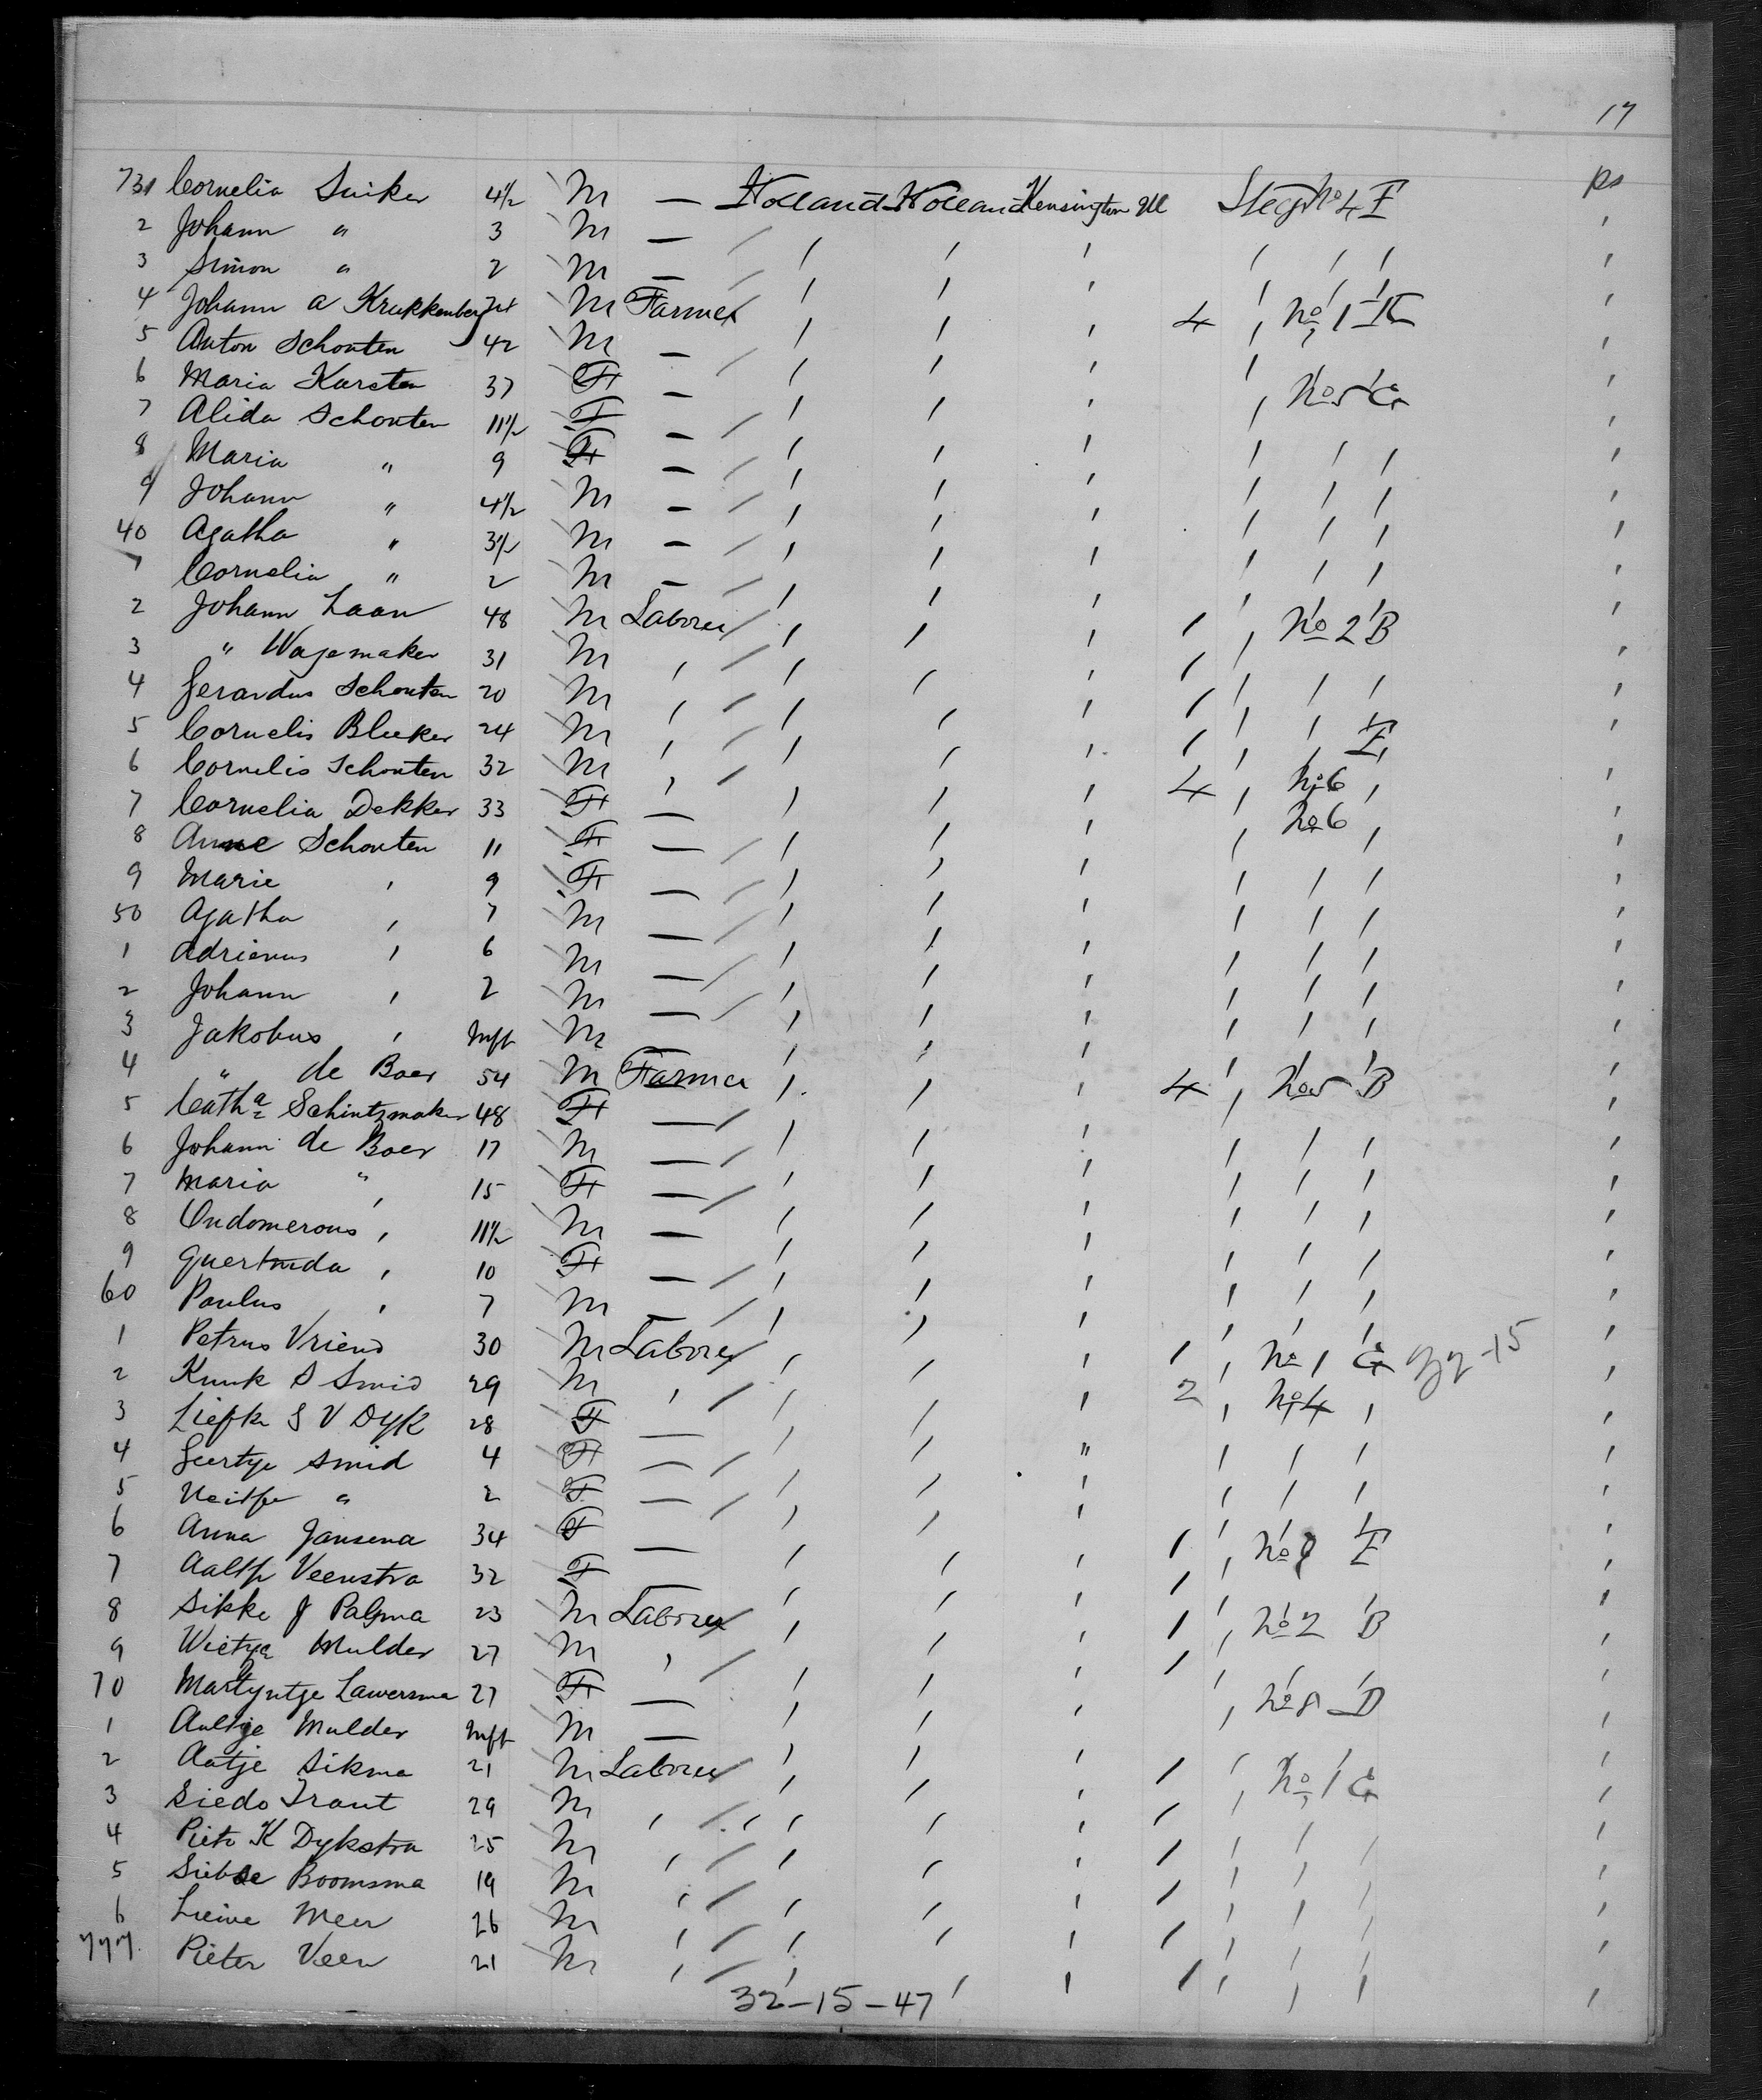 17
731 Cornelia Suiker 4½ M — Holland Holland Kensington Ill Steg No 4 E ps
2 Johann " 3 M —
3 Simon " 2 M —
4 Johann A Krukkenberg 24 M Farmer 4 No 1 K
5 Anton Schouten 42 M —
6 Maria Karsten 37 F — No 5 G
7 Alida Schouten 11½ F —
8 Maria " 9 F —
9 Johann " 4½ M —
40 Agatha " 3½ M —
1 Cornelia " 2 M —
2 Johann Laan 48 M Laborer 1 No 2 B
3 " Wagemaker 31 M 1
4 Gerardus Schouten 20 M 1
5 Cornelis Bleeker 24 M 1 E
6 Cornelis Schouten 32 M 4 No 6
7 Cornelia Dekker 33 F — No 6
8 Anne Schouten 11 F —
9 Marie 9 F —
50 Agatha 7 M —
1 Adrianus 6 M —
2 Johann 2 M —
3 Jakobus Inft M —
4 " de Boer 54 M Farmer 4 No 5 B
5 Catha Schintzmaker 48 F —
6 Johann de Boer 17 M —
7 Maria " 15 F —
8 Ondomerous 11½ M —
9 Guertruida 10 F —
60 Paulus 7 M —
1 Petrus Vriend 30 M Laborer 1 No 1 G
2 Kunk S Smid 29 M 2 No 4
3 Liefke S V Dyk 28 F —
4 Geertje Smid 4 F — "
5 " 2 F —
6 Anna Jansena 34 F — 1 No 8 E
7 Aaltje Veenstra 32 F — 1
8 Sikke J Palsma 23 M Laborer 1 No 2 B
9 Wietze Mulder 27 M 1
70 Martyntje Lawersma 27 F — No 8 D
1 Aaltje Mulder Inft M —
2 Aatje Sikma 21 M Laborer 1 No 1 G
3 Siedo Traut 29 M 1
4 Piete K Dykstra 25 M 1
5 Siebde Boomsma 19 M 1
6 Lieuwe Meer 26 M 1
777 Pieter Veen 21 M 1
32-15-47